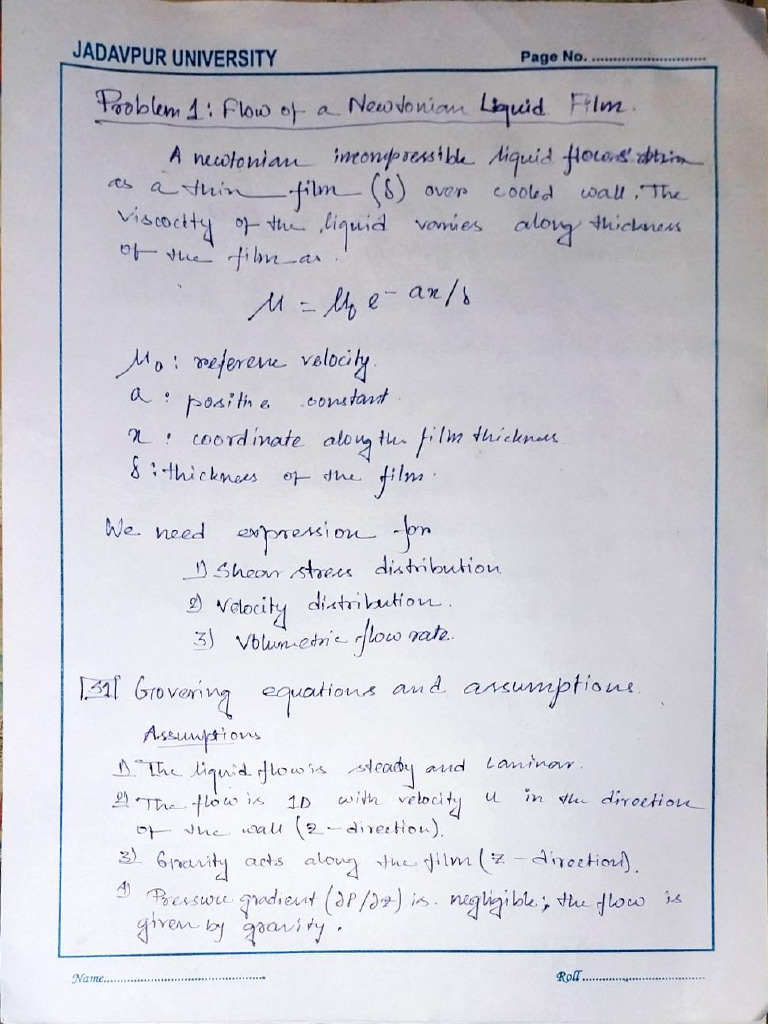 JADAVPUR UNIVERSITY Page No. ............................
Problem 1: Flow of a Newtonian Liquid Film.
A newtonian incompressible liquid flows
as a thin film (δ) over cooled wall. The
viscocity of the liquid varries along thickness
of the film as.
μ = μ₀ e^{- ax/δ}
μ₀ : referene velocity.
a : positive constant.
x : coordinate along the film thickness
δ : thickness of the film.
We need expression for
1) Shear stress distribution
2) Velocity distribution.
3) Volumetric flow rate.
Govering equations and assumptions.
Assumptions
1) The liquid flow is steady and Laminar.
2) The flow is 1D with velocity u in the direction
of the wall (z-direction).
3) Gravity acts along the film (z-direction).
4) Pressure gradient (∂P/∂z) is negligible; the flow is
given by gravity.
Name............................................ Roll.................................